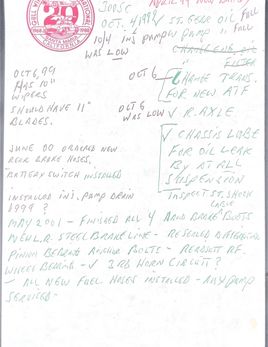 300SC
OCT. 4/98 ✓ ST. GEAR OIL FULL
10/4 INJ PUMP ✓ W PUMP " FULL
WAS LOW
CHANGE ENG. OIL
FILTER
OCT 6, 99
HAS 10"
WIPERS
SHOULD HAVE 11"
BLADES.
OCT 6
CHANGE TRANS.
FOR NEW ATF
OCT 6
WAS LOW ✓ R. AXLE.
✓ CHASSIS LUBE
FOR OIL LEAK
BY AT ALL
SUSPENSION
JUNE 00 ORDERED NEW
REAR BRAKE HOSES.
BATTERY SWITCH INSTALLED
INSPECT ST. SHOCK
INSTALLED INJ. PUMP DRAIN
1998?
MAY 2001 - FINISHED ALL 4 AND BRAKE BOOTS
NEW L.R. STEEL BRAKE LINE - RESEALED DIFFERENTIAL
PINION BEARING ANCHOR BOLTS - READJUST R.F.
WHEEL BEARING - ✓ 3RD HORN CIRCUIT?
- ALL NEW FUEL HOSES INSTALLED - PUMP
SERVICED -